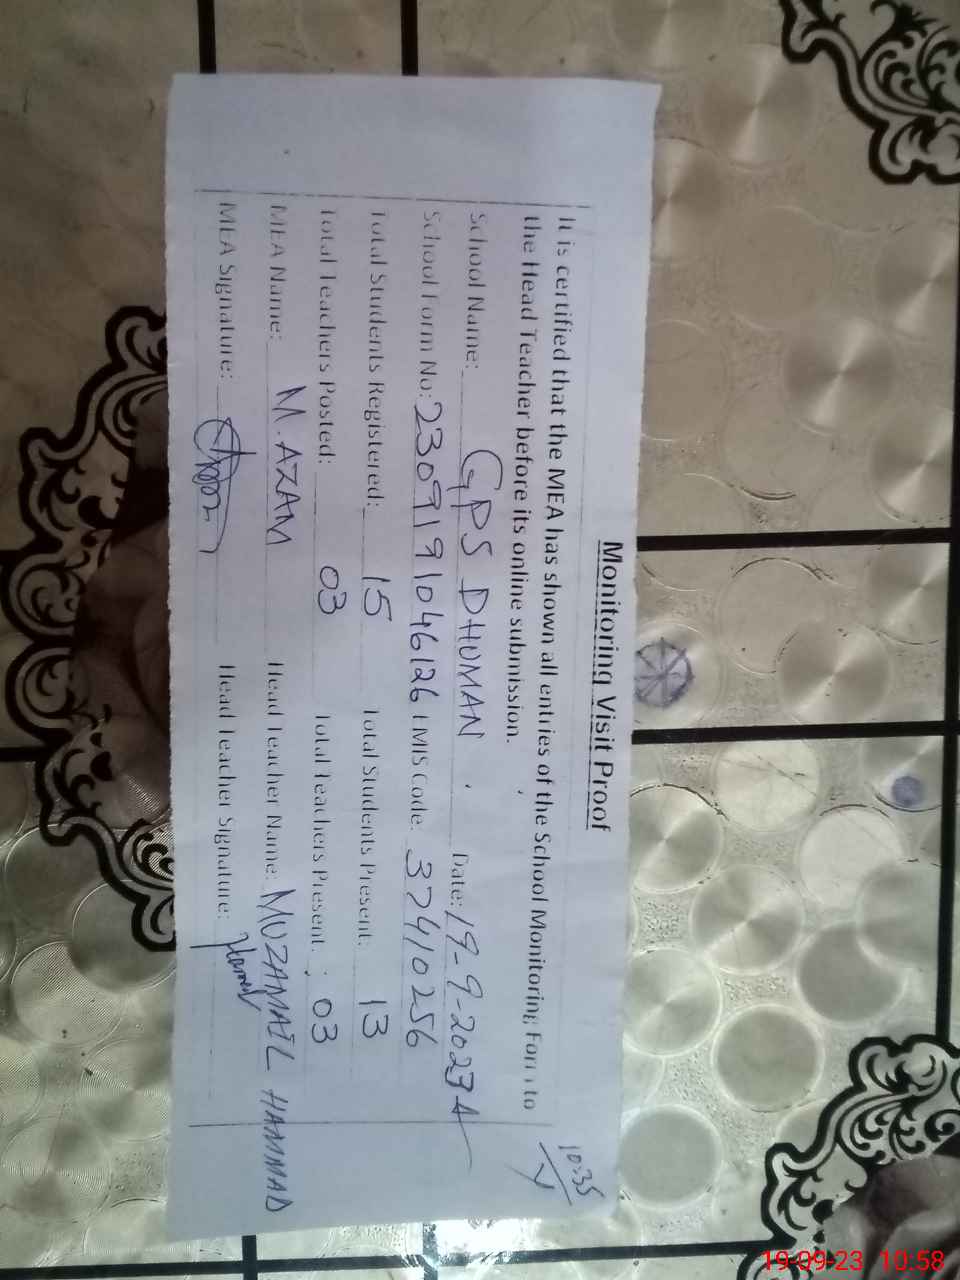 10:35
Monitoring Visit Proof
It is certified that the MEA has shown all entries of the School Monitoring Form to
the Head Teacher before its online submission.
School Name: GPS DHUMAN. Date: 19-9-2023
School Form No: 2309191046126 EMIS Code: 37410256
Total Students Registered: 15 Total Students Present: 13
Total Teachers Posted: 03 Total Teachers Present: 03
MEA Name: M. AZAM Head Teacher Name: MUZAMMIL HAMMAD
MEA Signature: Head Teacher Signature:
19-09-23 10:58